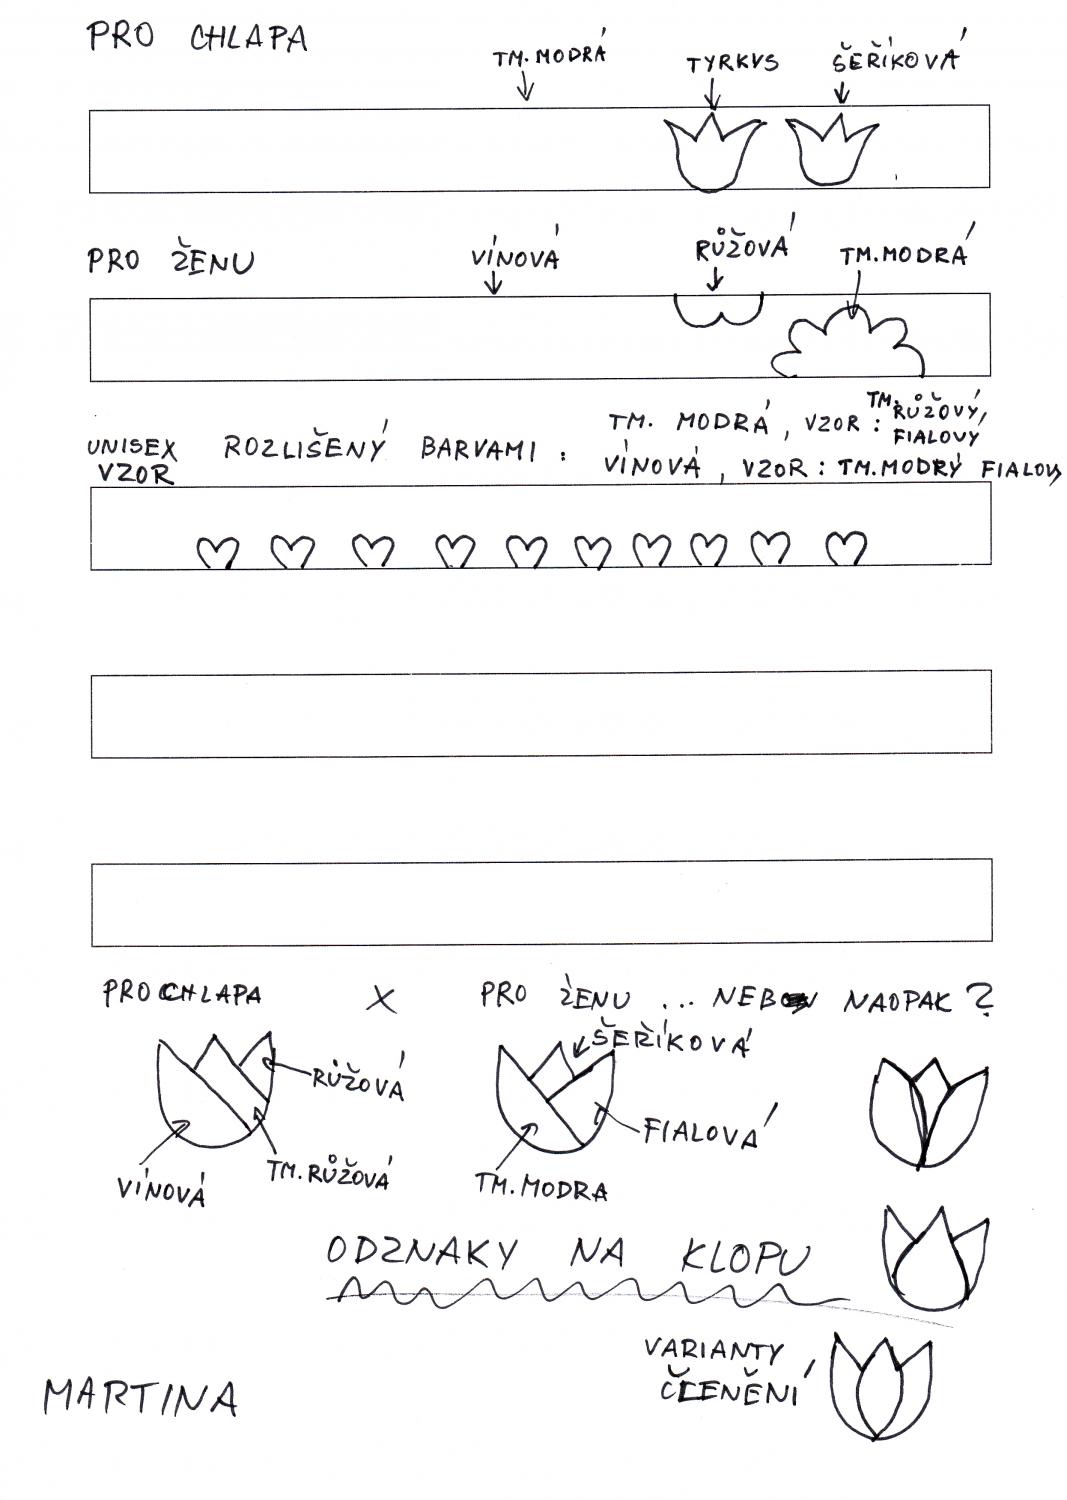 PRO CHLAPA
TM. MODRÁ
TYRKYS
ŠEŘÍKOVÁ
PRO ŽENU
VÍNOVÁ
RŮŽOVÁ
TM. MODRÁ
UNISEX ROZLIŠENÝ BARVAMI : TM. MODRÁ, VZOR : TM. RŮŽOVÝ, FIALOVÝ
VZOR VÍNOVÁ, VZOR : TM. MODRÝ FIALOVÝ
PRO CHLAPA X PRO ŽENU ... NEBO NAOPAK ?
RŮŽOVÁ
ŠEŘÍKOVÁ
FIALOVÁ
VÍNOVÁ
TM. RŮŽOVÁ
TM. MODRA
ODZNAKY NA KLOPU
VARIANTY
ČLENĚNÍ
MARTINA